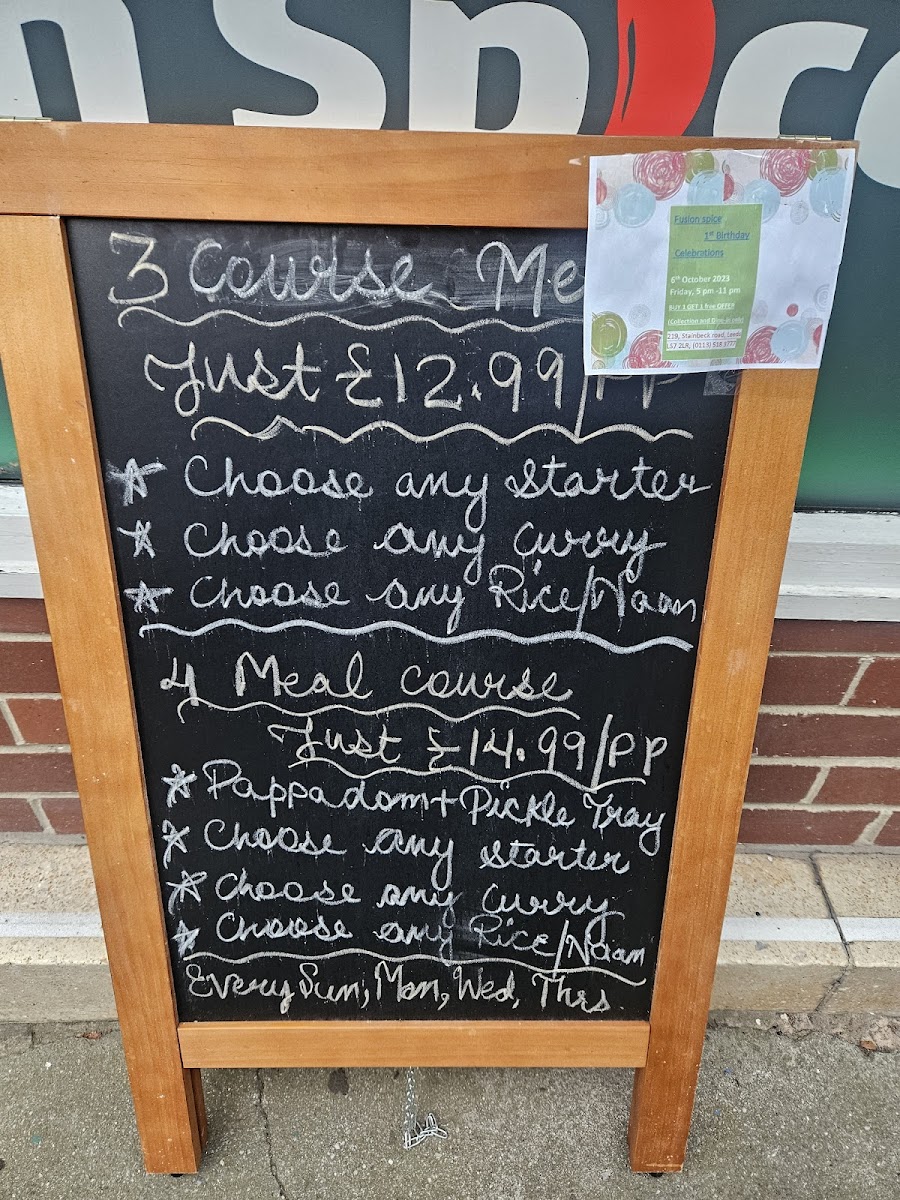 n Spice
3 Course Me
Just £12.99/PP
Choose any Starter
Choose any Curry
Choose any Rice/Naan
4 Meal course
Just £14.99/PP
Pappadom + Pickle Tray
Choose any starter
Choose any Curry
Choose any Rice/Naan
Every Sun, Mon, Wed, Thrs
Fusion spice
1st Birthday
Celebrations
6th October 2023
Friday, 5 pm -11 pm
BUY 1 GET 1 free OFFER
(Collection and Dine-in only)
219, Stainbeck road, Leeds
LS7 2LR, (0113) 518 3777